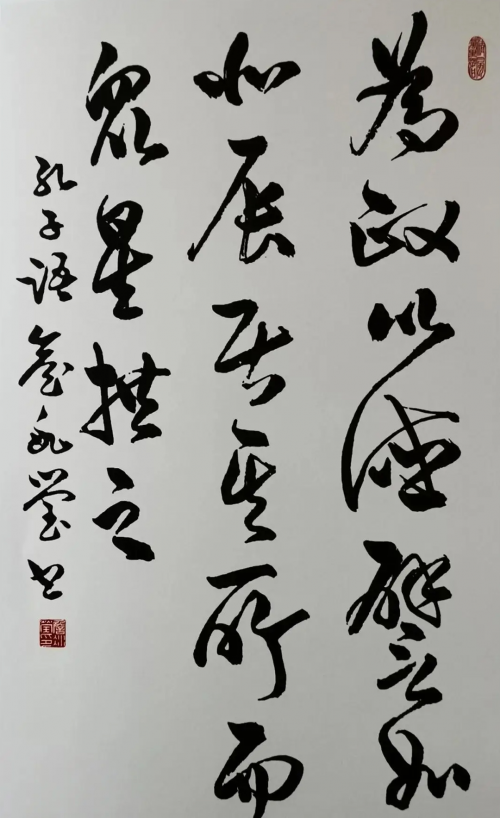 為政以德譬如
北辰居其所而
眾星拱之
孔子語 永瑩書